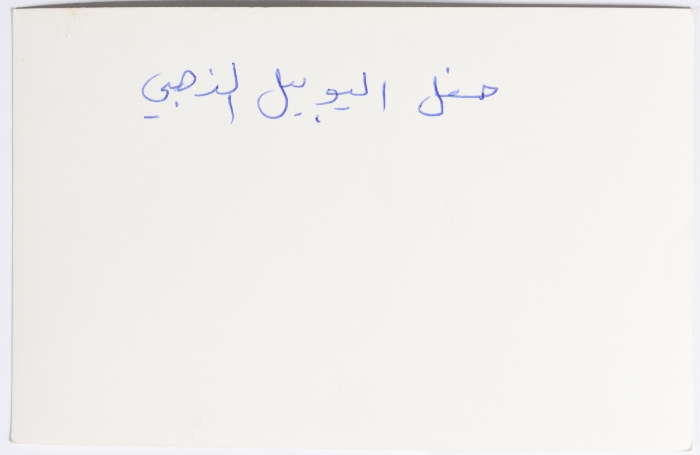 حفل اليوبيل الذهبي